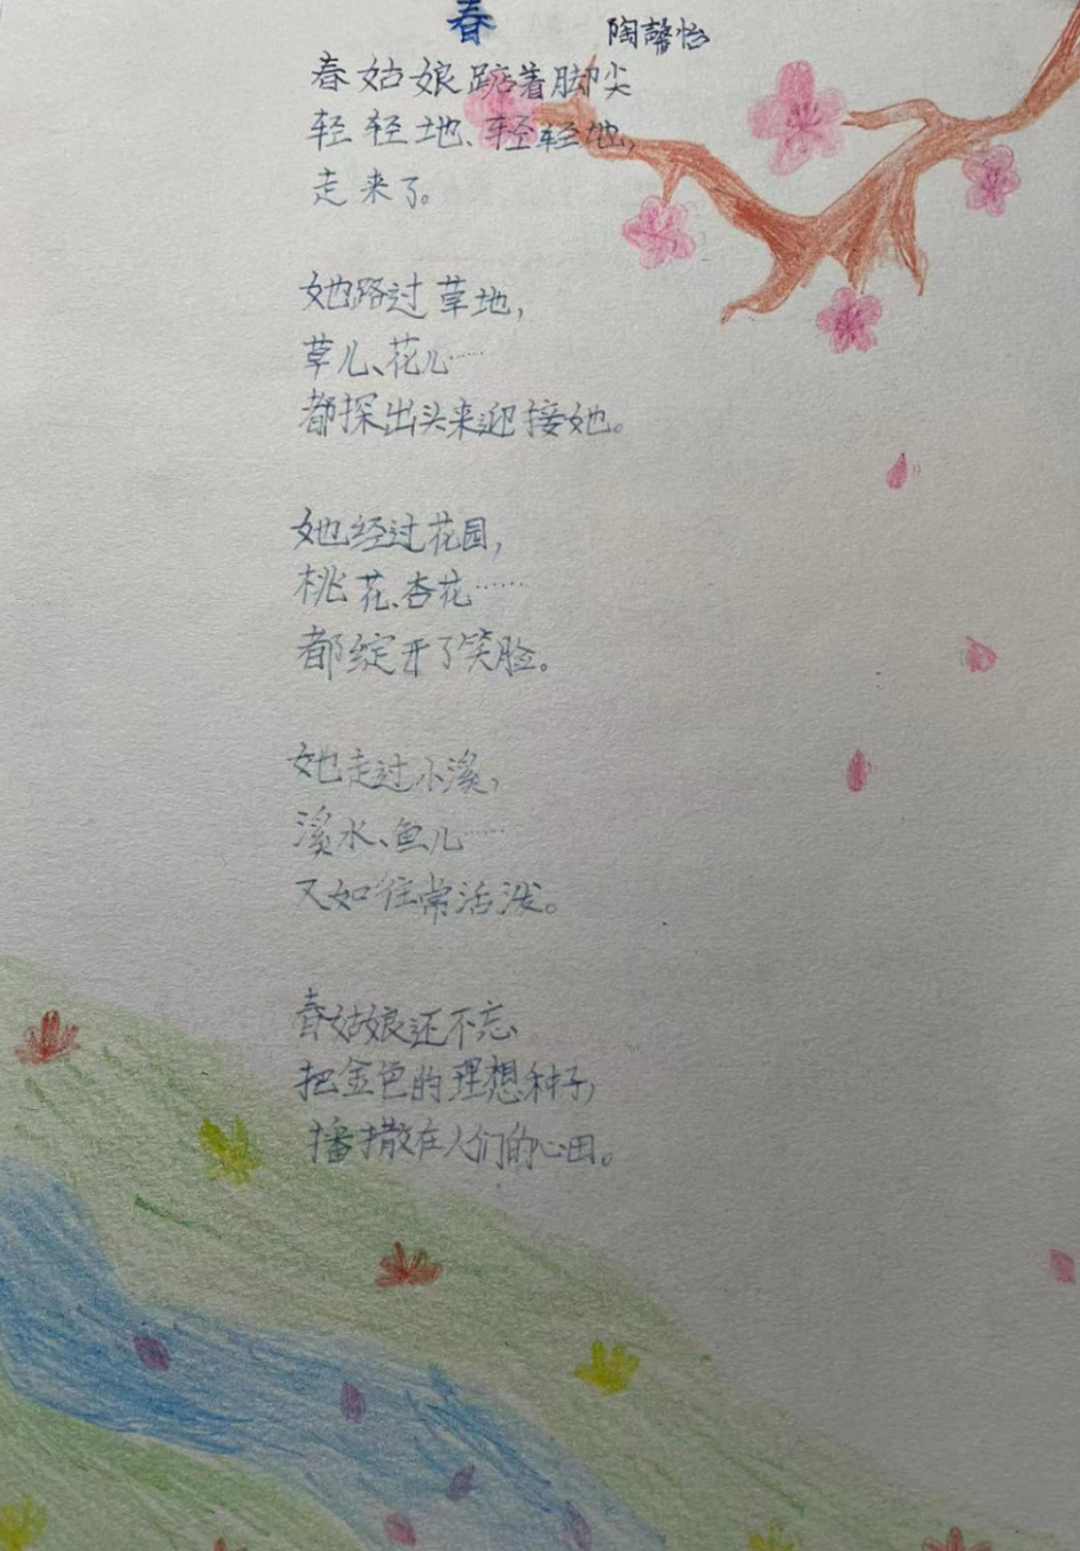 春 陶馨怡
春姑娘踮着脚尖
轻轻地、轻轻地,
走来了。
她路过草地,
草儿、花儿……
都探出头来迎接她。
她经过花园,
桃花、杏花……
都绽开了笑脸。
她走过小溪,
溪水、鱼儿……
又如往常活泼。
春姑娘还不忘
把金色的理想种子,
播撒在人们的心田。